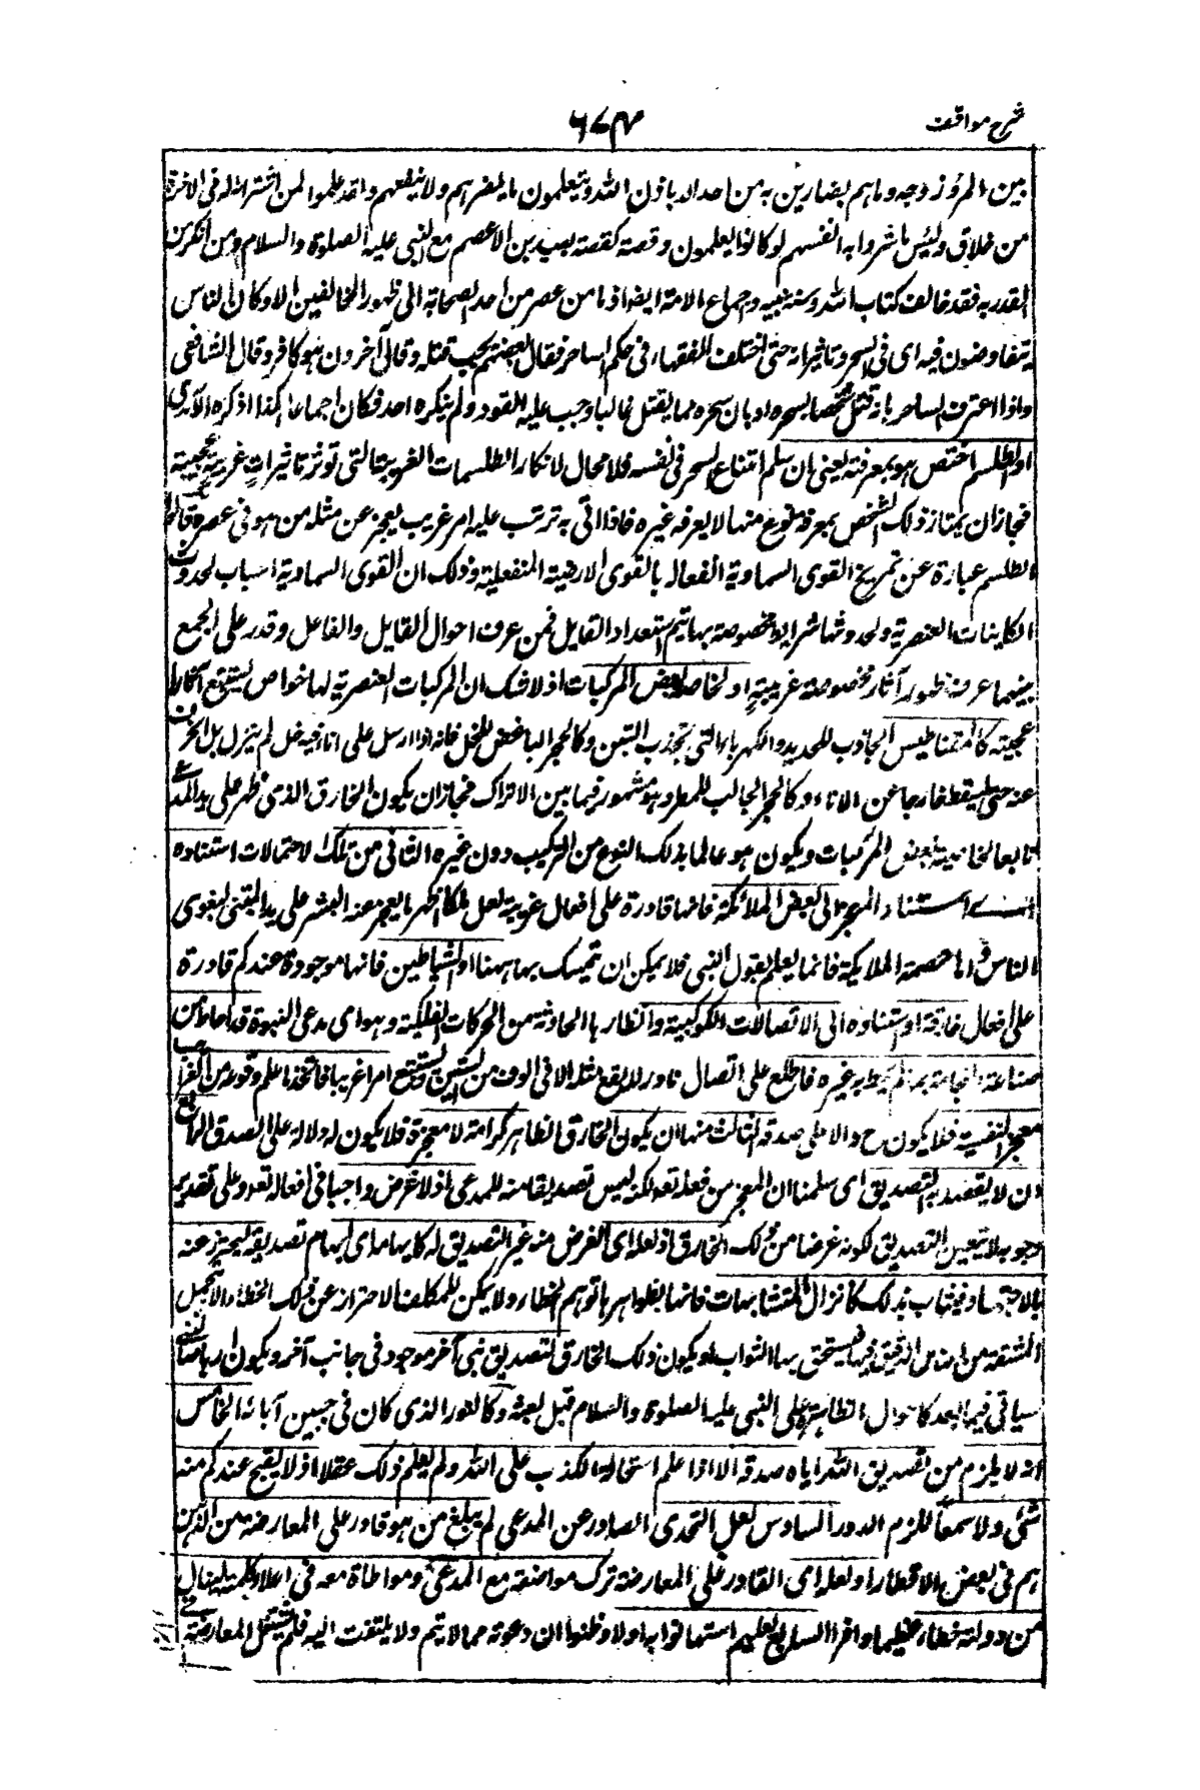 شرح مواقف
٦٧٣
بين المرء وزوجه وما هم بضارين به من احد الا باذن الله ويتعلمون ما يضرهم ولا ينفعهم ولقد علموا لمن اشتراه ما له فى الاخرة
من خلاق ولبئس ما شروا به انفسهم لو كانوا يعلمون وقصة كقصة لبيد بن الاعصم مع النبى عليه الصلوة والسلام ومن انكر من
القدر به فقد خالف كتاب الله وسنة نبيه واجماع الامة ايضا اذ ما من عصر من احد الصحابة الى ظهور المخالفين الا وكان الناس
يتفاوضون فيه اى فى السحر وتاثيراته حتى اختلف الفقهاء فى حكم الساحر فقال بعضهم يجب قتله وقال آخرون هو كافر وقال الشافعى
واذا اعترف الساحر بانه قتل شخصا بسحره او بان سحره مما يقتل غالبا وجب عليه القود ولم ينكره احد فكان اجماعا كذا ذكره الآمدى
او لطلسم اختص هو بمعرفته يعنى ان سلم امتناع السحر فى نفسه فلا مجال لانكار الطلسمات الغريبة التى توثر تاثيرات غريبة عجيبة
فجاز ان يمتاز ذلك الشخص بمعرفة نوع منها لا يعرفه غيره فاذا اتى به ترتب عليه امر غريب يعجز عن مثله من هو فى عصره
الطلسم عبارة عن تمزيج القوى السماوية الفعالة بالقوى الارضية المنفعلة وذلك ان القوى السماوية اسباب لحدوث
الكاينات العنصرية ولحدوثها شرايط مخصوصة بها يتم استعداد القابل فمن عرف احوال القابل والفاعل وقدر على الجمع
بينهما عرف ظهور آثار مخصوصة غريبة او لخاصة بعض المركبات اذ لا شك ان المركبات العنصرية لها خواص يستتبع آثارا
عجيبة كالمقناطيس الجاذب للحديد والكهرباء التى تجذب التبن وكالحجر الباغض للخل فانه اذا ارسل على اناء فيه خل لم ينزل بل انحرف
عنه حتى يسقط خارجا عن الاناء وكالحجر الجالب للمطر وهو مشهور فيما بين الاتراك فجاز ان يكون الخارق الذى ظهر على يد المدعى
تابعا لخاصية بعض المركبات ويكون هو عالما بذلك النوع من التركيب دون غيره الثانى من تلك الاحتمالات استناده
اى استناد المعجز الى بعض الملائكة فانها قادرة على افعال غريبة لعل ملكا اظهر ما يعجز عنه البشر على يد المتنبى ليغوى
الناس و اما عصمة الملايكة فانما يعلم بقول النبى فلا يمكن ان تمسك بها ههنا او الشياطين فانها موجودة عندكم قادرة
على افعال خارقة او استناده الى الاتصالات الكوكبية وانظارها الحادثة من الحركات الفلكية وهو اى مدعى النبوة قد احاط من
صناعة النجامة بما لم يحط به غيره فاطلع على اتصال نادر لا يقع مثله الا فى الوف من السنين ويستتبع امرا غريبا فاتخذ اعلم وقوعه من الغرايب
معجز لنفسه فلا يكون ح دالا على صدقه الثالث منها ان يكون الخارق الظاهر كرامة لا معجزة فلا يكون له دلالة على الصدق الرابع
ان لا يقصد به التصديق اى سلمنا ان المعجز من فعله تعالى لكنه ليس تصديقا منه للمدعى اذ لا غرض واجبا فى افعاله تعالى وعلى تقدير
وجوبه لا يتعين التصديق لكونه غرضا من ذلك الخارق اذ لعله اى الغرض منه غير التصديق له كايهام اى ايهام تصديقه ليحترز عنه
بالاجتهاد فيثاب بذلك كانزال المتشابهات فانها بظواهرها توهم الخطاء ولا يمكن للمكلف الاحتراز عن ذلك الخطاء الا بتحمل
المشقة من امعان الدقيق فيها فيستحق بها الثواب او يكون ذلك الخارق لتصديق نبى آخر موجود فى جانب آخر ويكون ارهاصا لنبى
سياتى فيما بعد كاحوال الظاهرة على النبى عليه الصلوة والسلام قبل بعثته وكالنور الذى كان فى جبين آبائه الخامس
انه لا يلزم من تصديق الله اياه صدقه الا اذا علم استحالة الكذب على الله ولم يعلم ذلك عقلا اذ لا يقبح عندكم منه
شئ ولا سمعا للزوم الدور السادس لعل التحدى الصادر عن المدعى لم يبلغ من هو قادر على المعارضة من الذين
هم فى بعض الاقطار او لعله اى القادر على المعارضة ترك مواضعة مع المدعى ومواطاة معه فى اعلاء كلمته لينال
من دولته خطاء عظيما وافرا السابع لعلهم استهانوا به اولا وظنوا ان دعوته مما لا يتم ولا يلتفت اليه فلم يشتغل لمعارضته فى